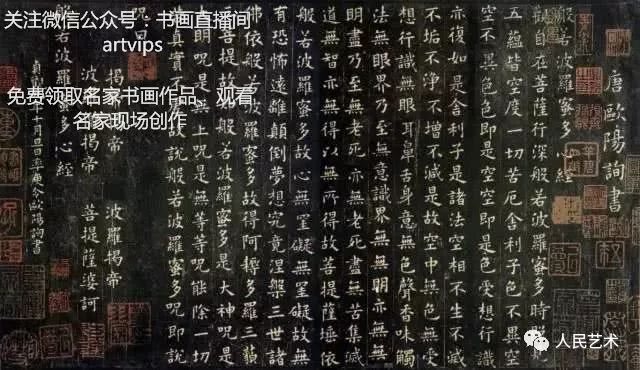 关注微信公众号：书画直播间
artvips
免费领取名家书画作品、观看
名家现场创作
唐歐陽詢書
般若波羅蜜多心經
觀自在菩薩行深般若波羅蜜多時
五蘊皆空度一切苦厄舍利子色不異空
空不異色色即是空空即是色受想行識
亦復如是舍利子是諸法空相不生不滅
不垢不淨不增不減是故空中無色無受
想行識無眼耳鼻舌身意無色聲香味觸
法無眼界乃至無意識界無無明亦無無
明盡乃至無老死亦無老死盡無苦集滅
道無智亦無得以無所得故菩提薩埵依
般若波羅蜜多故心無罣礙無罣礙故無
有恐怖遠離顛倒夢想究竟涅槃三世諸
佛依般若波羅蜜多故得阿耨多羅三藐
菩提故知般若波羅蜜多是大神呪是
大明呪是無上呪是無等等呪能除一切
真實不故說般若波羅蜜多呪即說
呪曰
揭帝揭帝 波羅揭帝
波羅揭帝 菩提薩婆訶
般若波羅多心經
貞觀十月旦率更令歐陽詢書
人民艺术